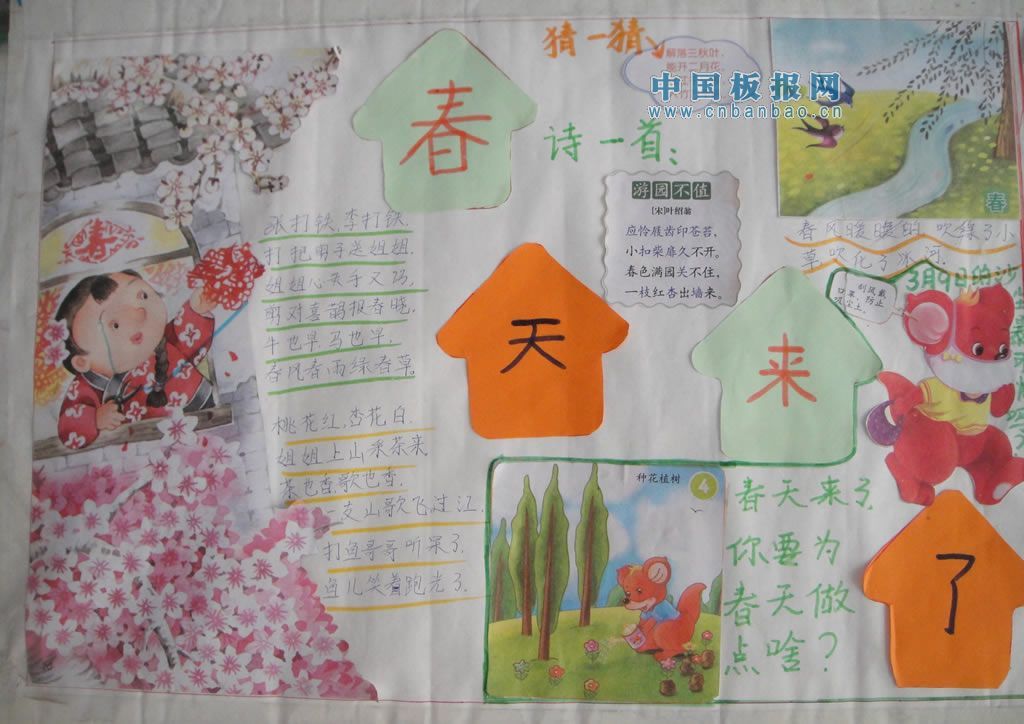 春
天
来
了
猜一猜
解落三秋叶，
能开二月花。
中国板报网
www.cnbanbao.cn
诗一首：
游园不值
[宋]叶绍翁
应怜屐齿印苍苔，
小扣柴扉久不开。
春色满园关不住，
一枝红杏出墙来。
春
春风暖暖的 吹绿了小
草 吹化了冰河.
3月9日的沙
刮风戴
口罩，防止
吸尘土.
春
张打铁,李打铁.
打把剪子送姐姐.
姐姐心灵手又巧,
剪对喜鹊报春晓.
牛也早,马也早.
春风春雨绿春草.
桃花红,杏花白.
姐姐上山采茶来
茶也香,歌也香.
一支山歌飞过江.
打鱼哥哥听呆了.
鱼儿笑着跑光了.
种花植树
4
春天来了.
你要为
春天做
点啥？